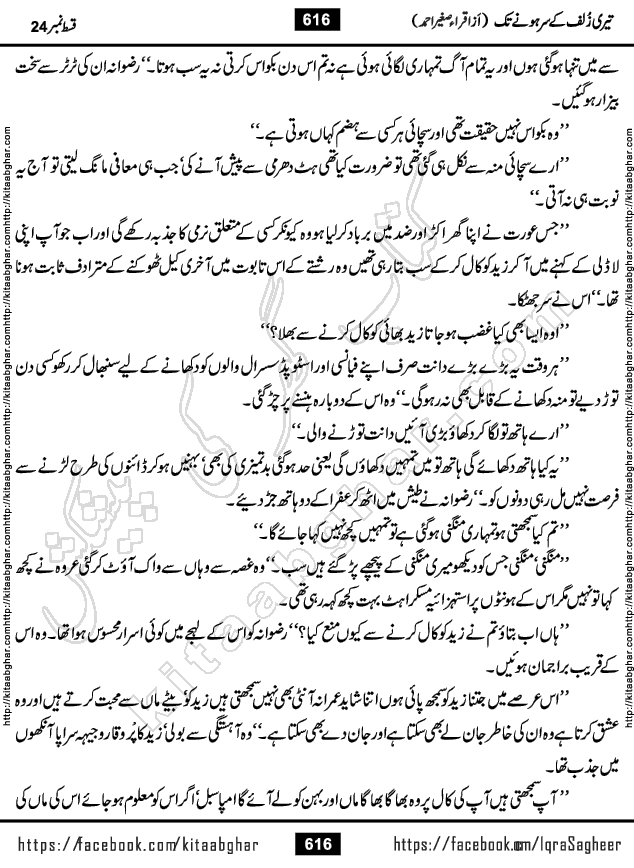 تیری زُلف کے سر ہونے تک (از اقراء صغیر احمد)
616
قسط نمبر 24
سے میں تنہا ہو گئی ہوں اور یہ تمام آگ تمہاری لگائی ہوئی ہے نہ تم اس دن بکواس کرتی نہ یہ سب ہوتا۔‘‘ رضوانہ ان کی ٹرٹر سے سخت
بیزار ہو گئیں۔
’’وہ بکواس نہیں حقیقت تھی اور سچائی ہر کسی سے ہضم کہاں ہوتی ہے۔‘‘
’’ارے سچائی منہ سے نکل ہی گئی تھی تو ضرورت کیا تھی ہٹ دھرمی سے پیش آنے کی‘ جب ہی معافی مانگ لیتی تو آج یہ
نوبت ہی نہ آتی۔‘‘
’’جس عورت نے اپنا گھر اکڑ اور ضد میں برباد کر لیا ہو وہ کیونکر کسی کے متعلق نرمی کا جذبہ رکھے گی اور اب جو آپ اپنی
لاڈلی کے کہنے میں آ کر زید کو کال کر کے سب بتا رہی تھیں وہ رشتے کے اس تابوت میں آخری کیل ٹھوکنے کے مترادف ثابت ہونا
تھا۔‘‘ اس نے سر جھٹکا۔
’’اوہ ایسا بھی کیا غضب ہو جاتا زید بھائی کو کال کرنے سے بھلا؟‘‘
’’ہر وقت یہ بڑے بڑے دانت صرف اپنے فیانسی اور اسٹوپڈ سسرال والوں کو دکھانے کے لیے سنبھال کر رکھو کسی دن
توڑ دیے تو منہ دکھانے کے قابل بھی نہ رہو گی۔‘‘ وہ اس کے دوبارہ ہنسنے پر چڑ گئی۔
’’ارے ہاتھ تو لگا کر دکھاؤ بڑی آئیں دانت توڑنے والی۔‘‘
’’یہ کیا ہاتھ دکھائے گی ہاتھ تو میں تمہیں دکھاؤں گی یعنی حد ہو گئی بدتمیزی کی بھی‘ بہنیں ہو کر ڈائنوں کی طرح لڑنے سے
فرصت نہیں مل رہی دونوں کو۔‘‘ رضوانہ نے طیش میں اٹھ کر عفرا کے دو ہاتھ جڑ دیئے۔
’’تم کیا سمجھتی ہو تمہاری منگنی ہو گئی ہے تو تمہیں کچھ نہیں کہا جائے گا۔‘‘
’’منگنی‘ منگنی جس کو دیکھو میری منگنی کے پیچھے پڑ گئے ہیں سب۔‘‘ وہ غصہ سے وہاں سے واک آؤٹ کر گئی عروہ نے کچھ
کہا تو نہیں مگر اس کے ہونٹوں پر استہزائیہ مسکراہٹ بہت کچھ کہہ رہی تھی۔
’’ہاں اب بتاؤ تم نے زید کو کال کرنے سے کیوں منع کیا؟‘‘ رضوانہ کو اس کے لہجے میں کوئی اسرار محسوس ہوا تھا۔ وہ اس
کے قریب براجمان ہوئیں۔
’’اس عرصے میں جتنا زید کو سمجھ پائی ہوں اتنا شاید عمرانہ آنٹی بھی نہیں سمجھتی ہیں زید کو‘ بیٹے ماں سے محبت کرتے ہیں اور وہ
عشق کرتا ہے وہ ان کی خاطر جان لے بھی سکتا ہے اور جان دے بھی سکتا ہے۔‘‘ وہ آہستگی سے بولی‘ زید کا پُر وقار و جیہہ سراپا آنکھوں
میں جذب تھا۔
’’آپ سمجھتی ہیں آپ کی کال پر وہ بھاگا بھاگا ماں اور بہن کو لے آئے گا امپاسبل‘ اگر اس کو معلوم ہو جائے اس کی ماں کی
کتاب گھر کی پیشکش
kitaabghar.com
http://kitaabghar.comhttp://kitaabghar.comhttp://kitaabghar.comhttp://kitaabghar.com
http://kitaabghar.comhttp://kitaabghar.comhttp://kitaabghar.comhttp://kitaabghar.com
https://facebook.com/kitaabghar
616
https://facebook.com/IqraSagheer